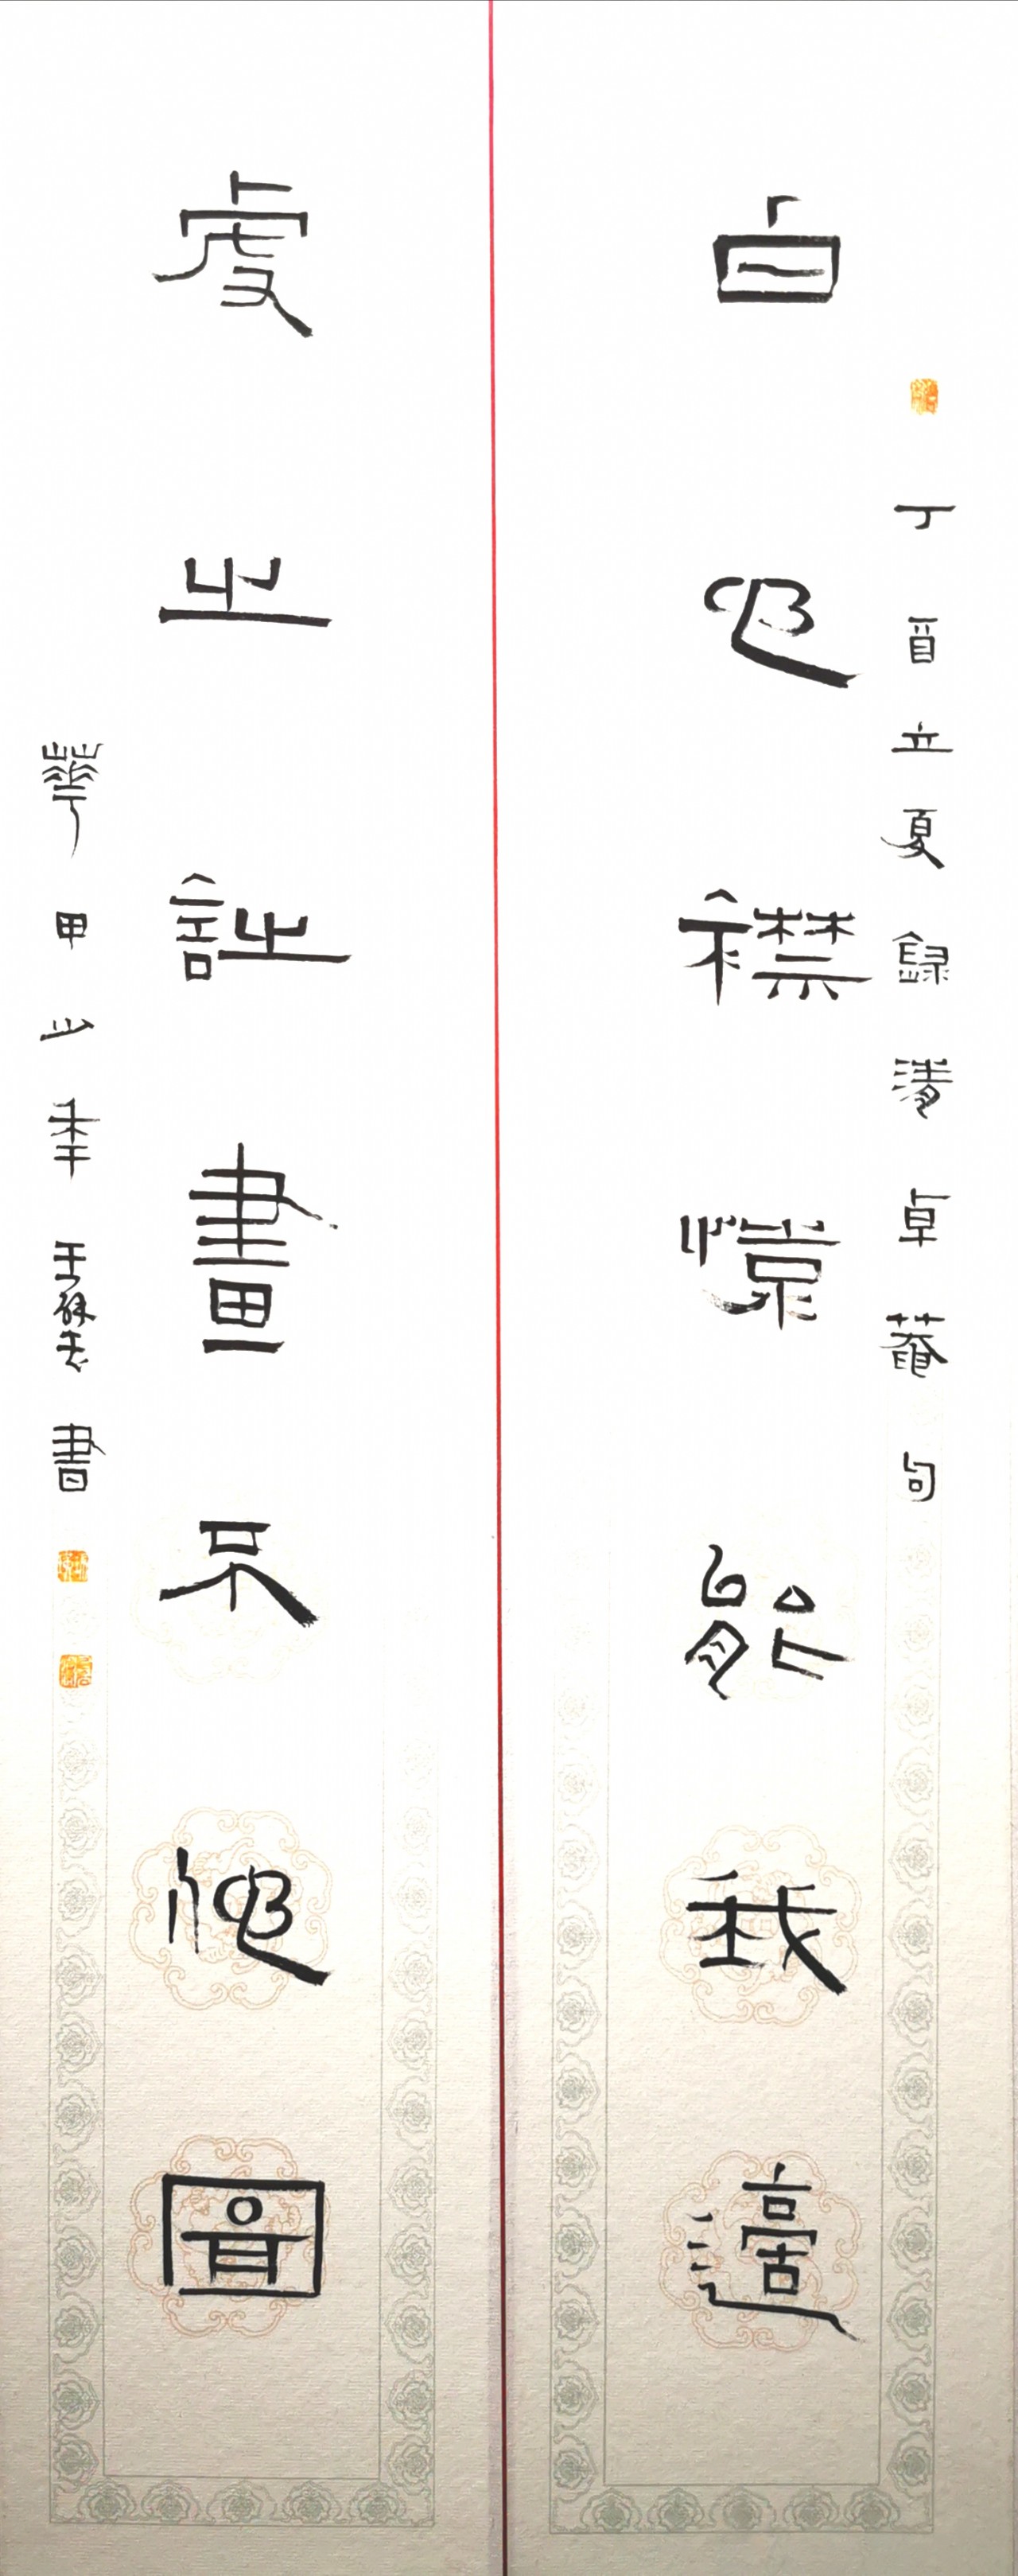 白也襟懷能我適
丁酉立夏錄清卓菴句
虔之詩畫不他圖
華甲少年王書